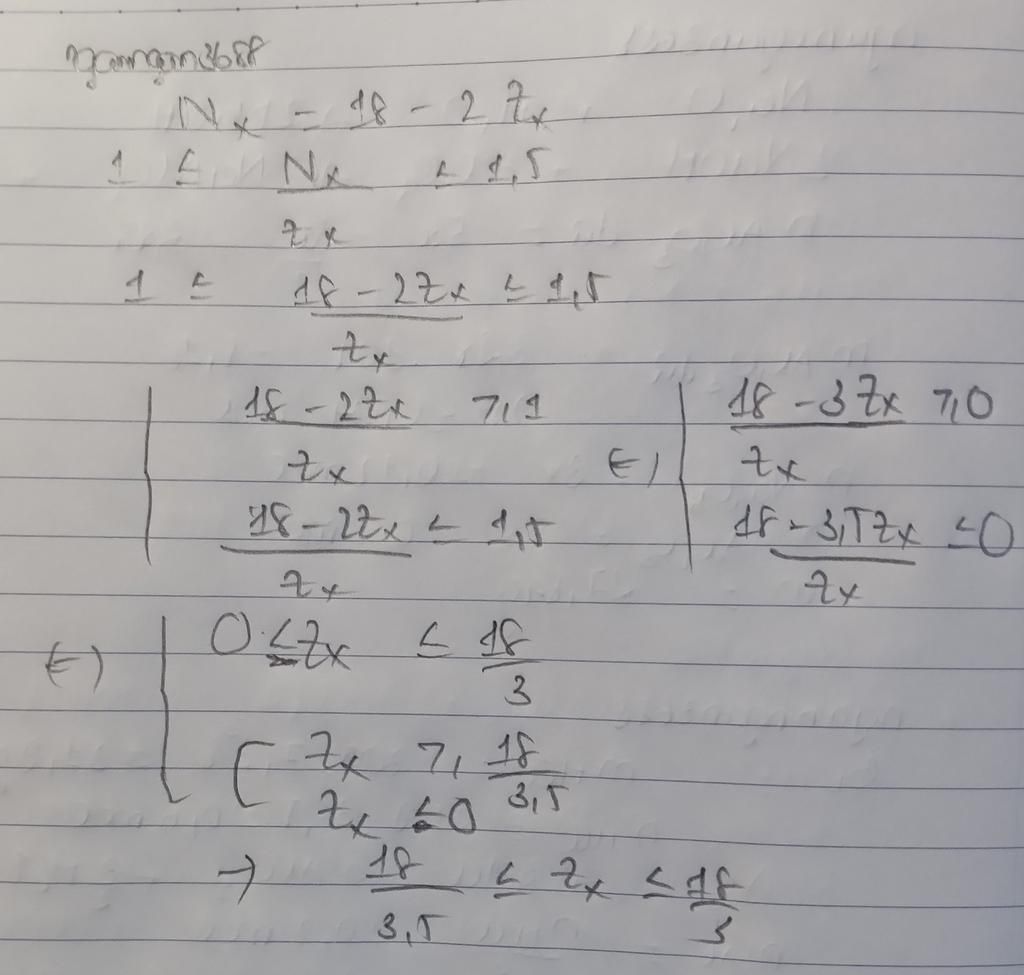 ngamngam3688
Nx = 18 - 2 Zx
1 ≤ Nx / Zx ≤ 1,5
1 ≤ 18 - 2Zx / Zx ≤ 1,5
18 - 2Zx / Zx ≥ 1 ⇔ 18 - 3Zx / Zx ≥ 0
18 - 2Zx / Zx ≤ 1,5 18 - 3,5Zx / Zx ≤ 0
⇔ 0 ≤ Zx ≤ 18 / 3
[ Zx ≥ 18 / 3,5
Zx ≤ 0
→ 18 / 3,5 ≤ Zx ≤ 18 / 3